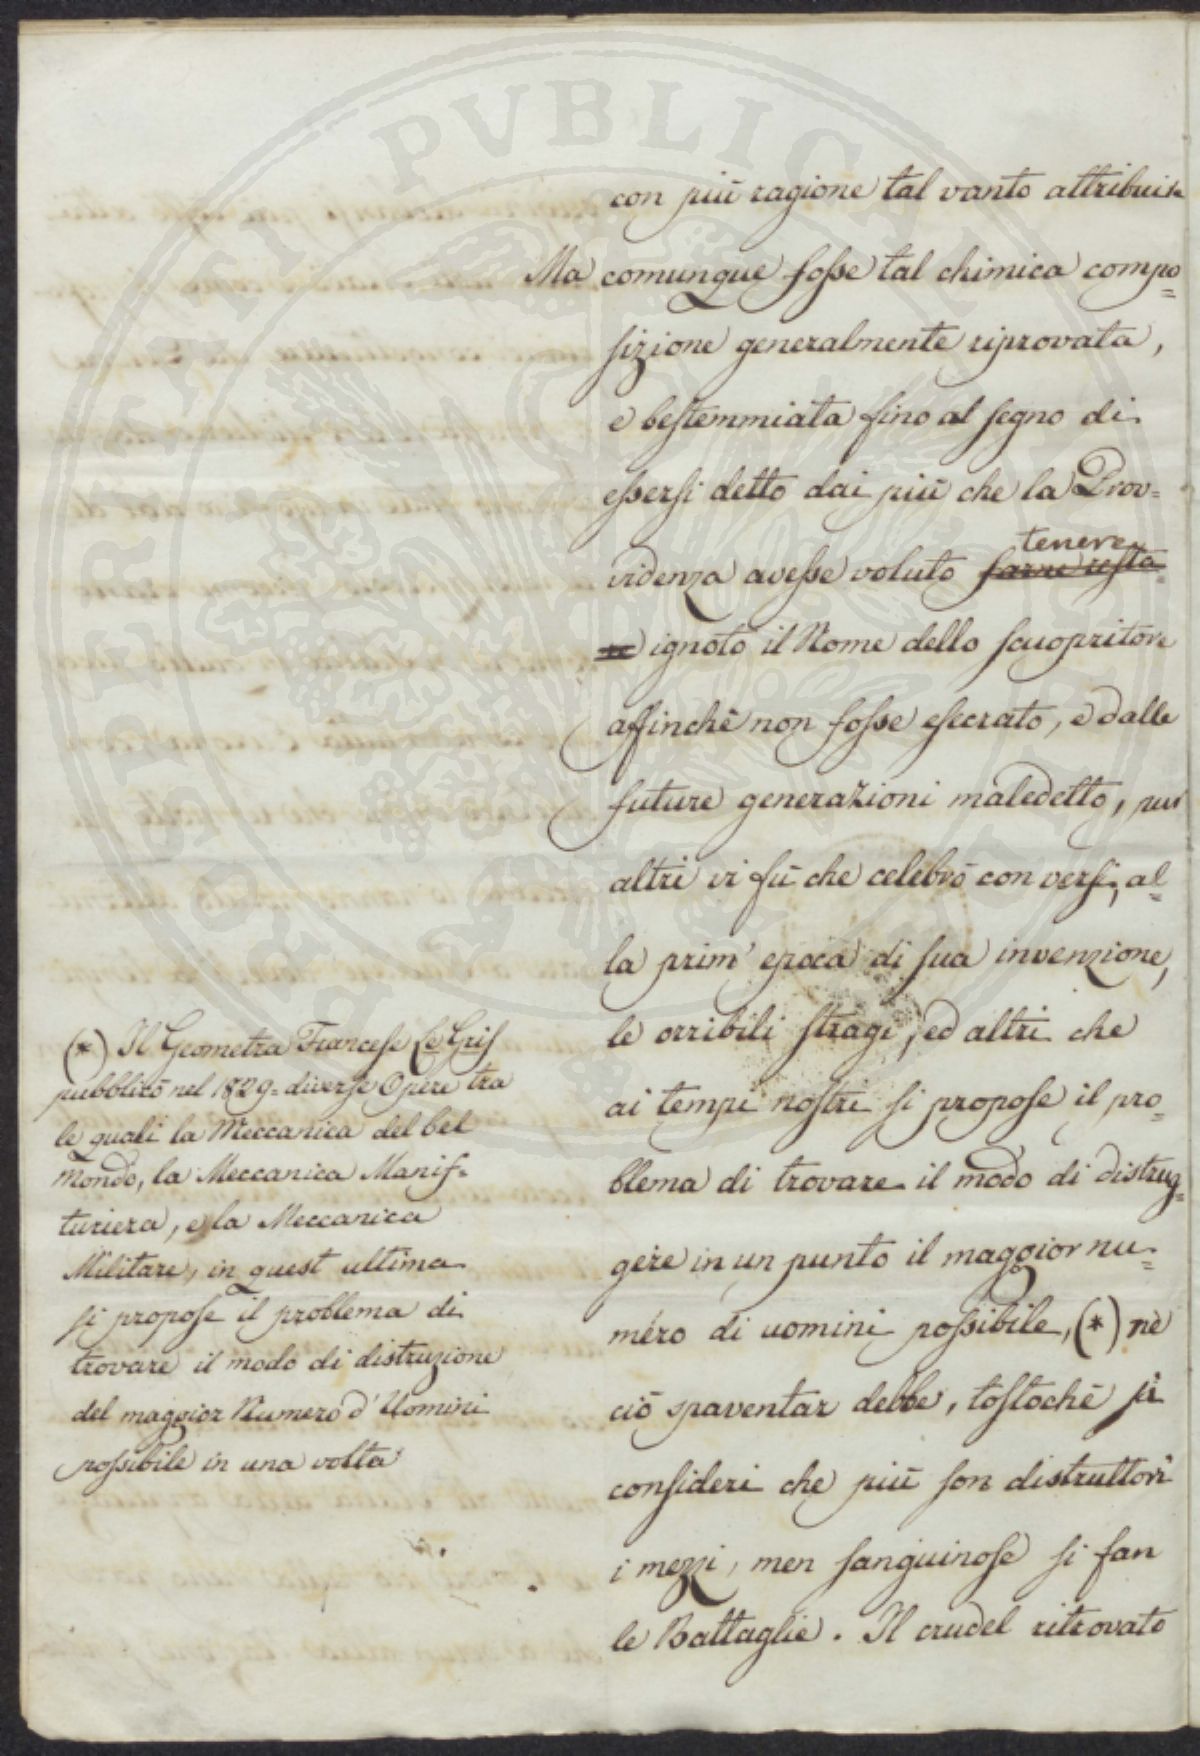 con più ragione tal vanto attribuire
Ma comunque fosse tal chimica compo=
sizione generalmente riprovata,
e bestemmiata fino al segno di
essersi detto dai più che la Prov=
videnza avesse voluto farne resta tenere
re ignoto il Nome dello scuopritore
affinchè non fosse esecrato, e dalle
future generazioni maledetto, pur
altri vi fù che celebrò con versi, al=
la prim' epoca di sua invenzione,
le orribili stragi, ed altri che
ai tempi nostri si propose il pro=
blema di trovare il modo di distrug=
gere in un punto il maggior nu=
mero di uomini possibile, (*) nè
ciò spaventar debbe, tostochè si
consideri che più son distruttori
i mezzi, men sanguinose si fan
le Battaglie. Il crudel ritrovato
(*) Il Geometra Francese Le Gris
pubblicò nel 1829= diverse Opere tra
le quali la Meccanica del bel
mondo, la Meccanica Manif=
turiera, e la Meccanica
Militare, in quest ultima
si propose il problema di
trovare il modo di distruzione
del maggior Numero d'Uomini
possibile in una volta
PROSPERITATI PVBLICAE